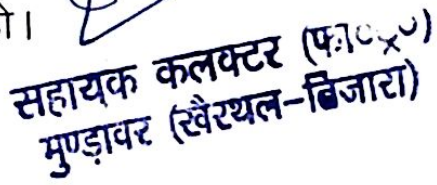 ो।
सहायक कलक्टर (फा०ट्र०)
मुण्डावर (खैरथल-तिजारा)